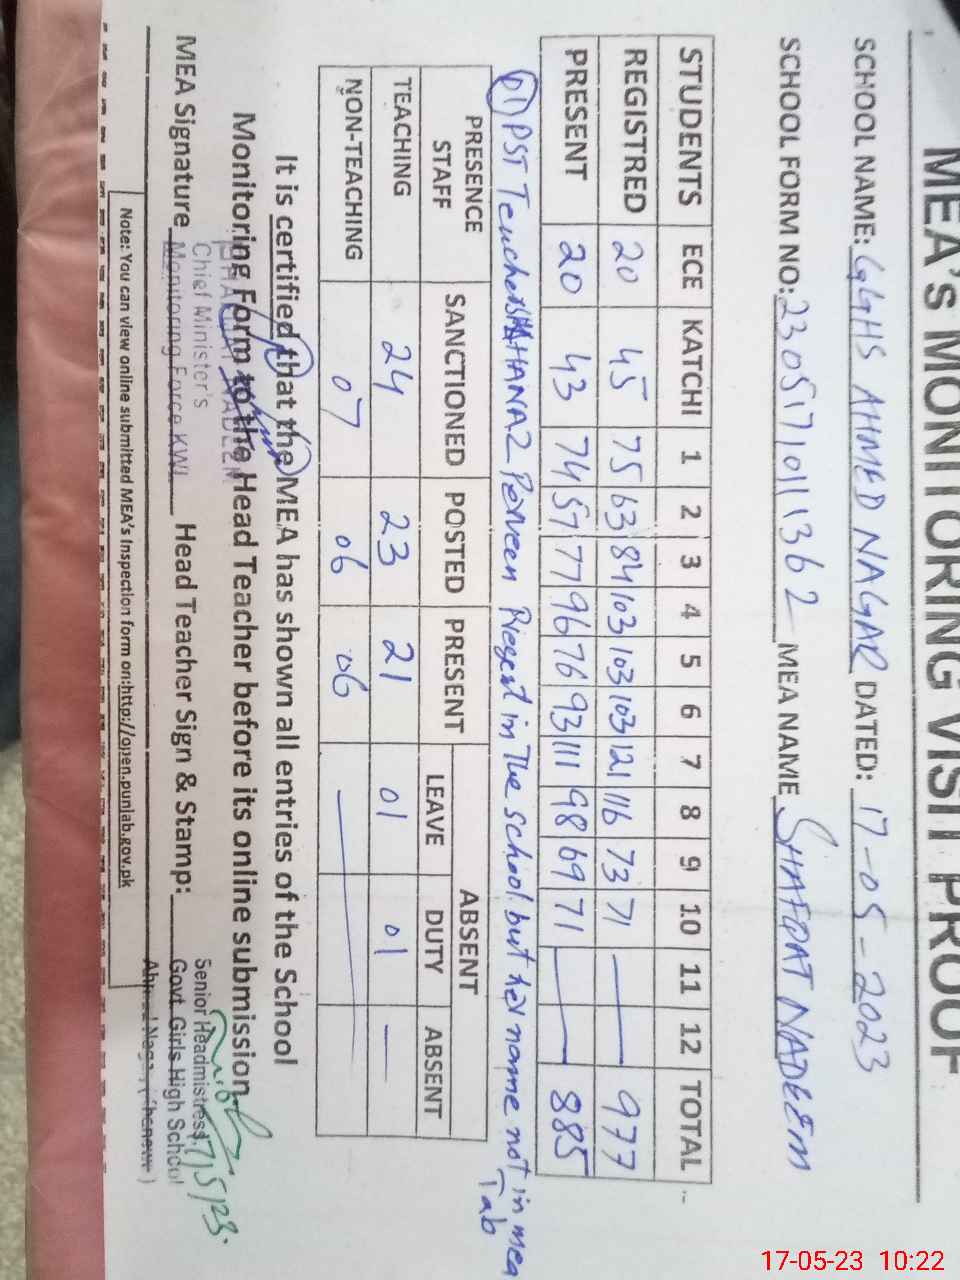 MEA's MONITORING VISIT PROOF
SCHOOL NAME: GGHS AHMED NAGAR DATED: 17-05-2023
SCHOOL FORM NO: 23051710111362 MEA NAME SHAFQAT NADEEM
STUDENTS ECE KATCHI 1 2 3 4 5 6 7 8 9 10 11 12 TOTAL
REGISTRED 20 45 75 63 84 103 103 103 121 116 73 71 — 977
PRESENT 20 43 74 57 77 96 76 93 111 98 69 71 — 885
01) PST Teacher SHAHANAZ Perveen Present in The school but her name not in mea
Tab
PRESENCE STAFF SANCTIONED POSTED PRESENT ABSENT
LEAVE DUTY ABSENT
TEACHING 24 23 21 01 01 —
NON-TEACHING 07 06 06 —
It is certified that the MEA has shown all entries of the School
Monitoring Form to the Head Teacher before its online submission
MEA Signature Head Teacher Sign & Stamp:
SHAFQAT NADEEM
Chief Minister's
Monitoring Force KWL
17/5/23.
Senior Headmistress
Govt. Girls High School
Ahmed Nagar
Note: You can view online submitted MEA's Inspection form on:http://open.punjab.gov.pk
17-05-23 10:22